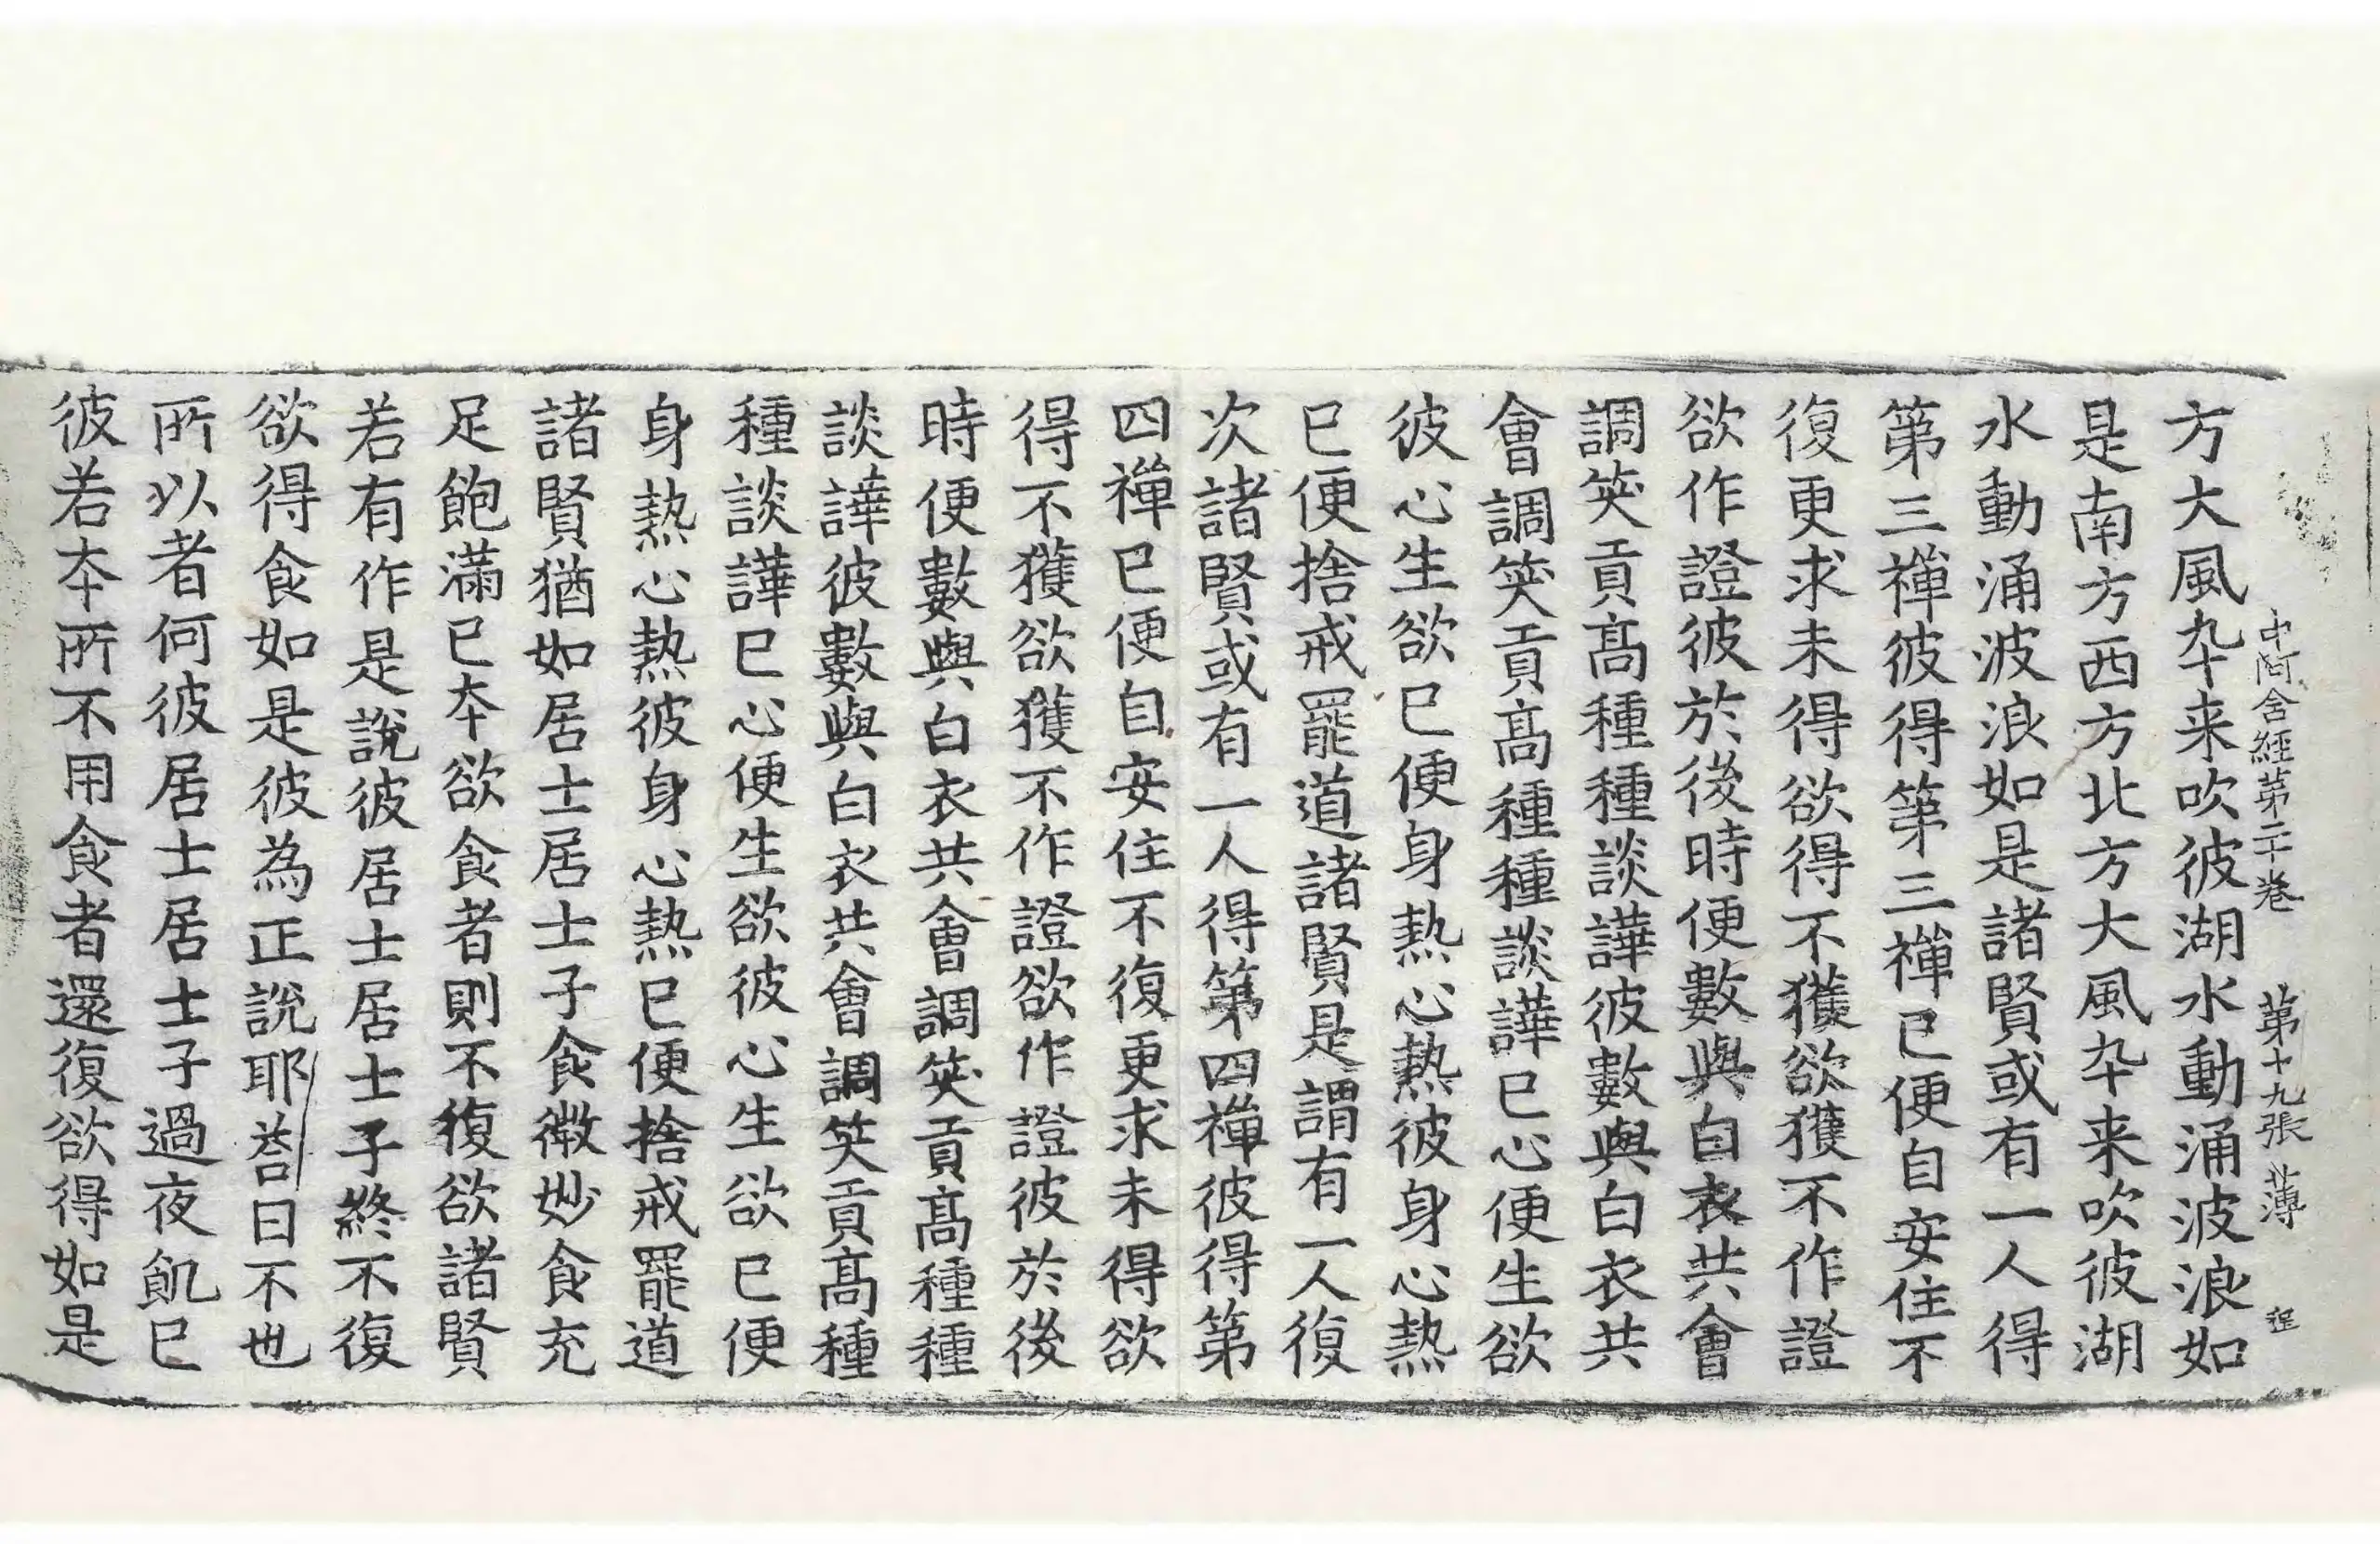 中阿含經第二十卷 第十九張 薄 程
方大風卒来吹彼湖水動涌波浪如
是南方西方北方大風卒来吹彼湖
水動涌波浪如是諸賢或有一人得
第三禪彼得第三禪已便自安住不
復更求未得欲得不獲欲獲不作證
欲作證彼於後時便數與白衣共會
調笑貢高種種談譁彼數與白衣共
會調笑貢高種種談譁已心便生欲
彼心生欲已便身熱心熱彼身心熱
已便捨戒罷道諸賢是謂有一人復
次諸賢或有一人得第四禪彼得第
四禪已便自安住不復更求未得欲
得不獲欲獲不作證欲作證彼於後
時便數與白衣共會調笑貢高種種
談譁彼數與白衣共會調笑貢高種
種談譁已心便生欲彼心生欲已便
身熱心熱彼身心熱已便捨戒罷道
諸賢猶如居士居士子食微妙食充
足飽滿已夲欲食者則不復欲諸賢
若有作是說彼居士居士子終不復
欲得食如是彼為正說耶荅曰不也
所以者何彼居士居士子過夜飢已
彼若夲所不用食者還復欲得如是